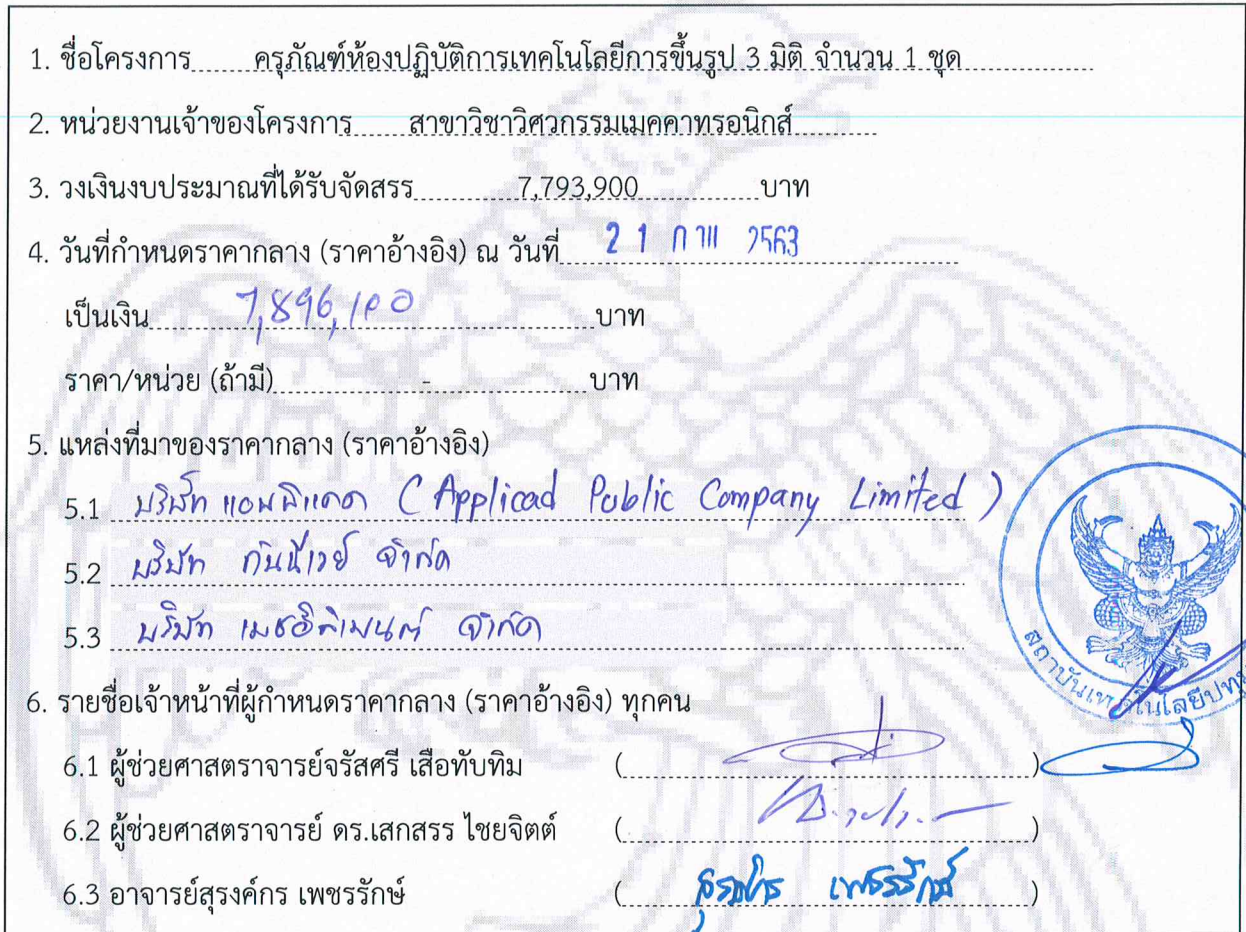 1. ชื่อโครงการ ครุภัณฑ์ห้องปฏิบัติการเทคโนโลยีการขึ้นรูป 3 มิติ จำนวน 1 ชุด
2. หน่วยงานเจ้าของโครงการ สาขาวิชาวิศวกรรมเมคคาทรอนิกส์
3. วงเงินงบประมาณที่ได้รับจัดสรร 7,793,900 บาท
4. วันที่กำหนดราคากลาง (ราคาอ้างอิง) ณ วันที่ 21 2563
เป็นเงิน 7,896,100 บาท
ราคา/หน่วย (ถ้ามี) - บาท
5. แหล่งที่มาของราคากลาง (ราคาอ้างอิง)
5.1 บริษัท แอพพิแคด (Applicad Public Company Limited)
5.2 บริษัท จำกัด
5.3 บริษัท จำกัด
สถาบันเทคโนโลยีปทุม
6. รายชื่อเจ้าหน้าที่ผู้กำหนดราคากลาง (ราคาอ้างอิง) ทุกคน
6.1 ผู้ช่วยศาสตราจารย์จรัสศรี เสือทับทิม ( )
6.2 ผู้ช่วยศาสตราจารย์ ดร.เสกสรร ไชยจิตต์ ( )
6.3 อาจารย์สุรงค์กร เพชรรักษ์ ( เพชรรักษ์ )